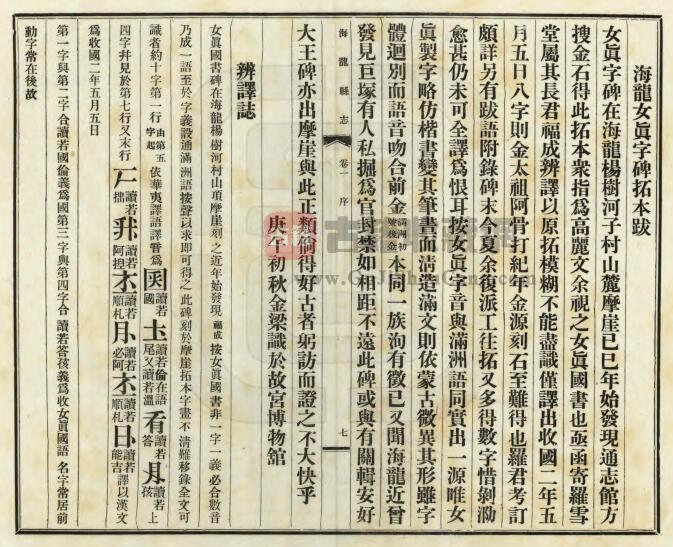 海龍女眞字碑拓本跋
女眞字碑在海龍楊樹河子村山麓摩崖已巳年始發現通志館方
搜金石得此拓本衆指爲高麗文余視之女眞國書也亟函寄羅雪
堂屬其長君福成辨譯以原拓模糊不能盡識僅譯出收國二年五
月五日八字則金太祖阿骨打紀年金源刻石至難得也羅君考訂
頗詳另有跋語附錄碑末今夏余復派工往拓又多得數字惜剝泐
愈甚仍未可全譯爲恨耳按女眞字音與滿洲語同實出一源唯女
眞製字略仿楷書變其筆畫而淸造滿文則依蒙古微異其形雖字
體迥別而語音吻合前金滿洲初號後金本同一族洵有徵已又聞海龍近曾
發見巨塚有人私掘爲官封禁如相距不遠此碑或與有關輯安好
大王碑亦出摩崖與此正類倘得好古者躬訪而證之不大快乎
庚午初秋金梁識於故宮博物館
海龍縣志
卷一 序
七
辨譯誌
女眞國書碑在海龍楊樹河村山頂摩崖刻之近年始發現福成按女眞國書非一字一義必合數音
乃成一語至於字義設通滿洲語按聲以求卽可得之此碑刻於摩崖拓本字畫不淸難移錄全文可
識者約十字第一行由第五字起依華夷譯語譯音爲讀若國讀若倫在語尾又讀若溫讀若答讀若孩上
四字幷見於第七行又末行讀若拙讀若阿揑讀若順札讀若必阿讀若順札讀若能吉譯以漢文
爲收國二年五月五日
第一字與第二字合讀若國倫義爲國第三字與第四字合讀若答孩義爲收女眞國語名字常居前
動字常在後故